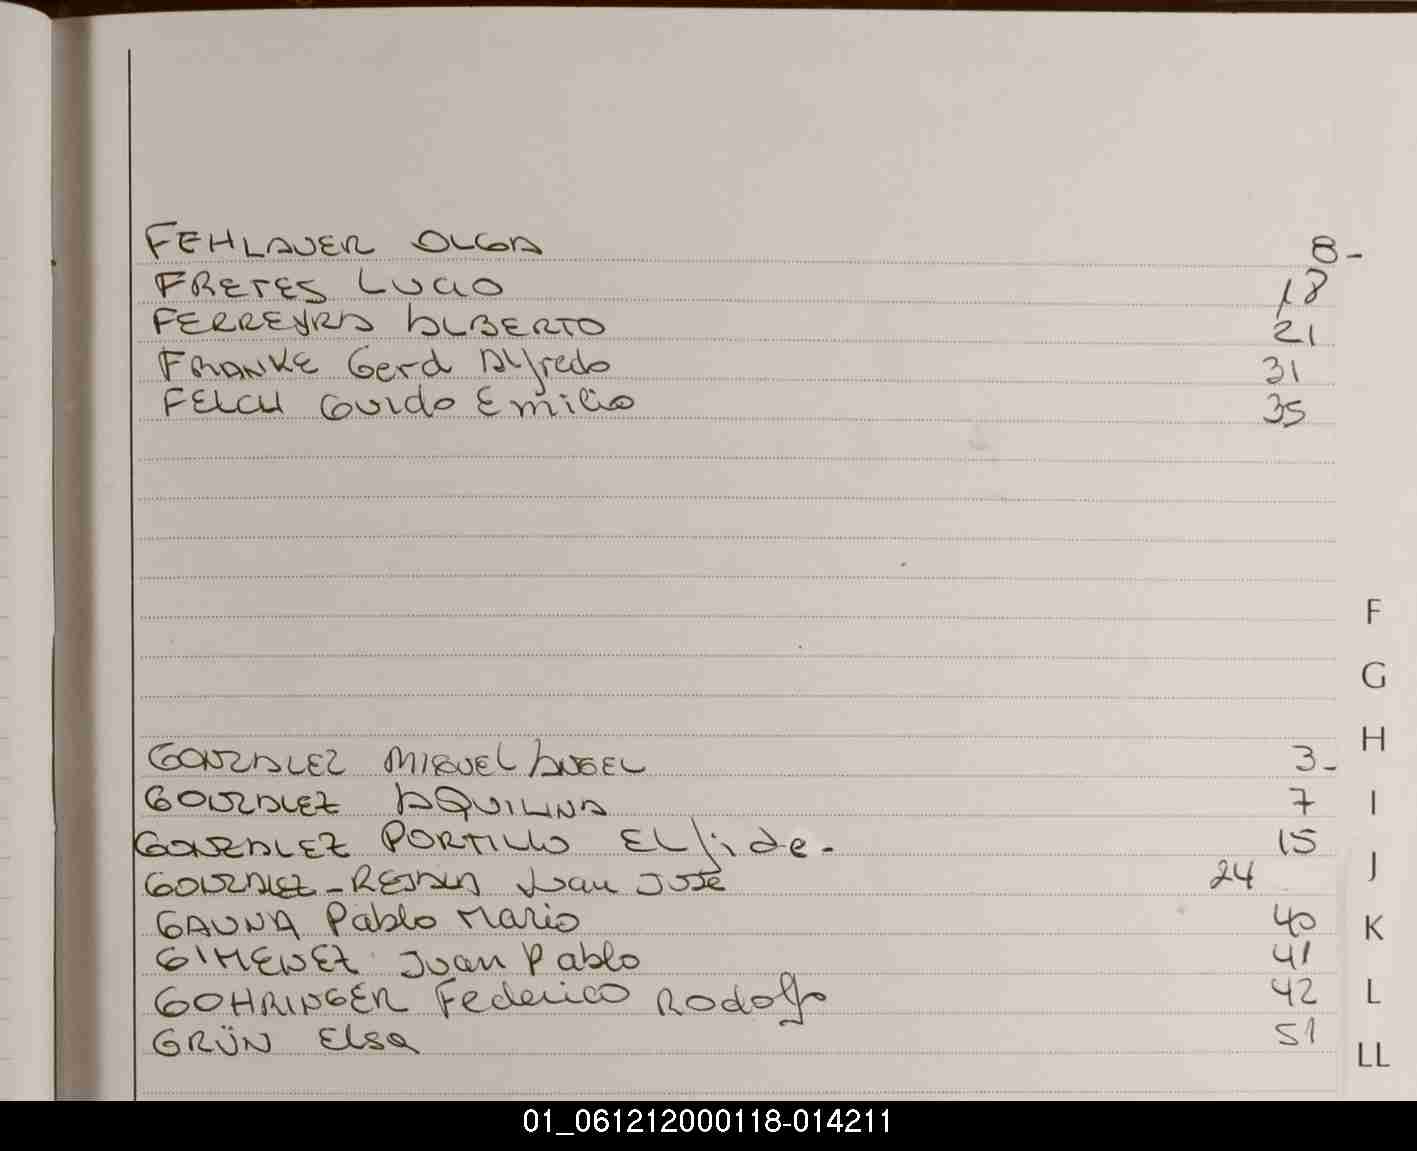 FEHLAUER OLGA 8-
FRETES LUCIO 18
FERREYRA ALBERTO 21
FRANKE Gerd Alfredo 31
FELCH GUIDO Emilio 35
F
G
H
GONZALEZ MIGUEL ANGEL 3-
GONZALEZ AQUILINA 7
I
GONZALEZ PORTILLO ELfide- 15
J
GONZALEZ- Juan JOSE 24
GAUNA Pablo Mario 40
K
GIMENEZ Juan Pablo 41
GOHRINGER Federico RODOlfo 42
L
GRÜN Elsa 51
LL
01_061212000118-014211